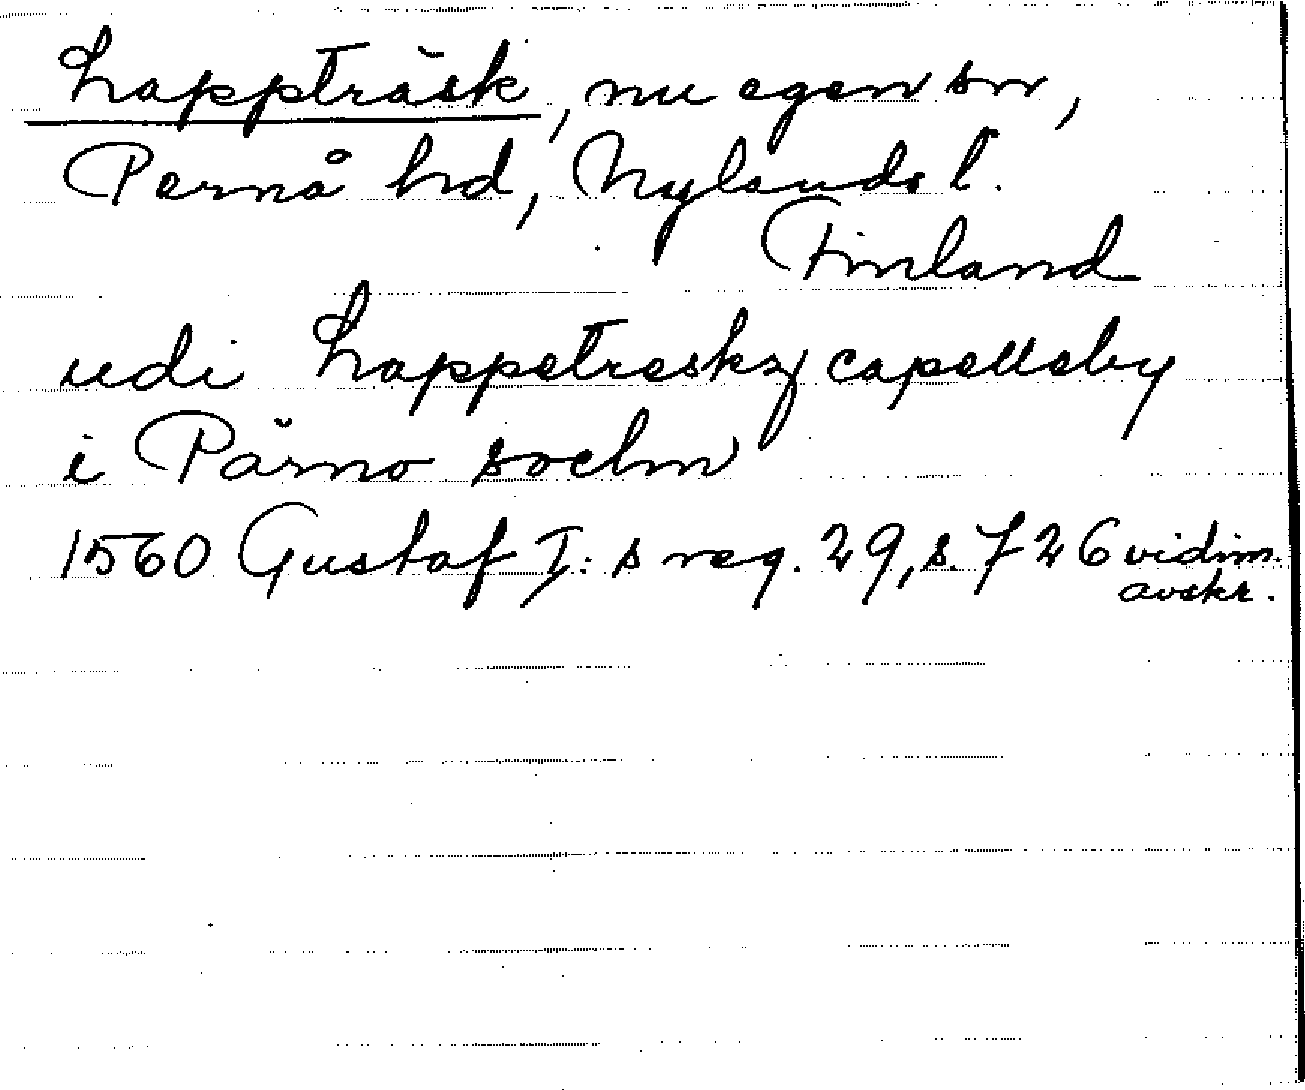 Lappträsk, nu egen sn,
Pernå hd, Nylands l.
Finland
udi Lappetreskz capellsby
i Pärno sochn
1560 Gustaf I:s reg. 29, s. 726 vidim.
avskr.